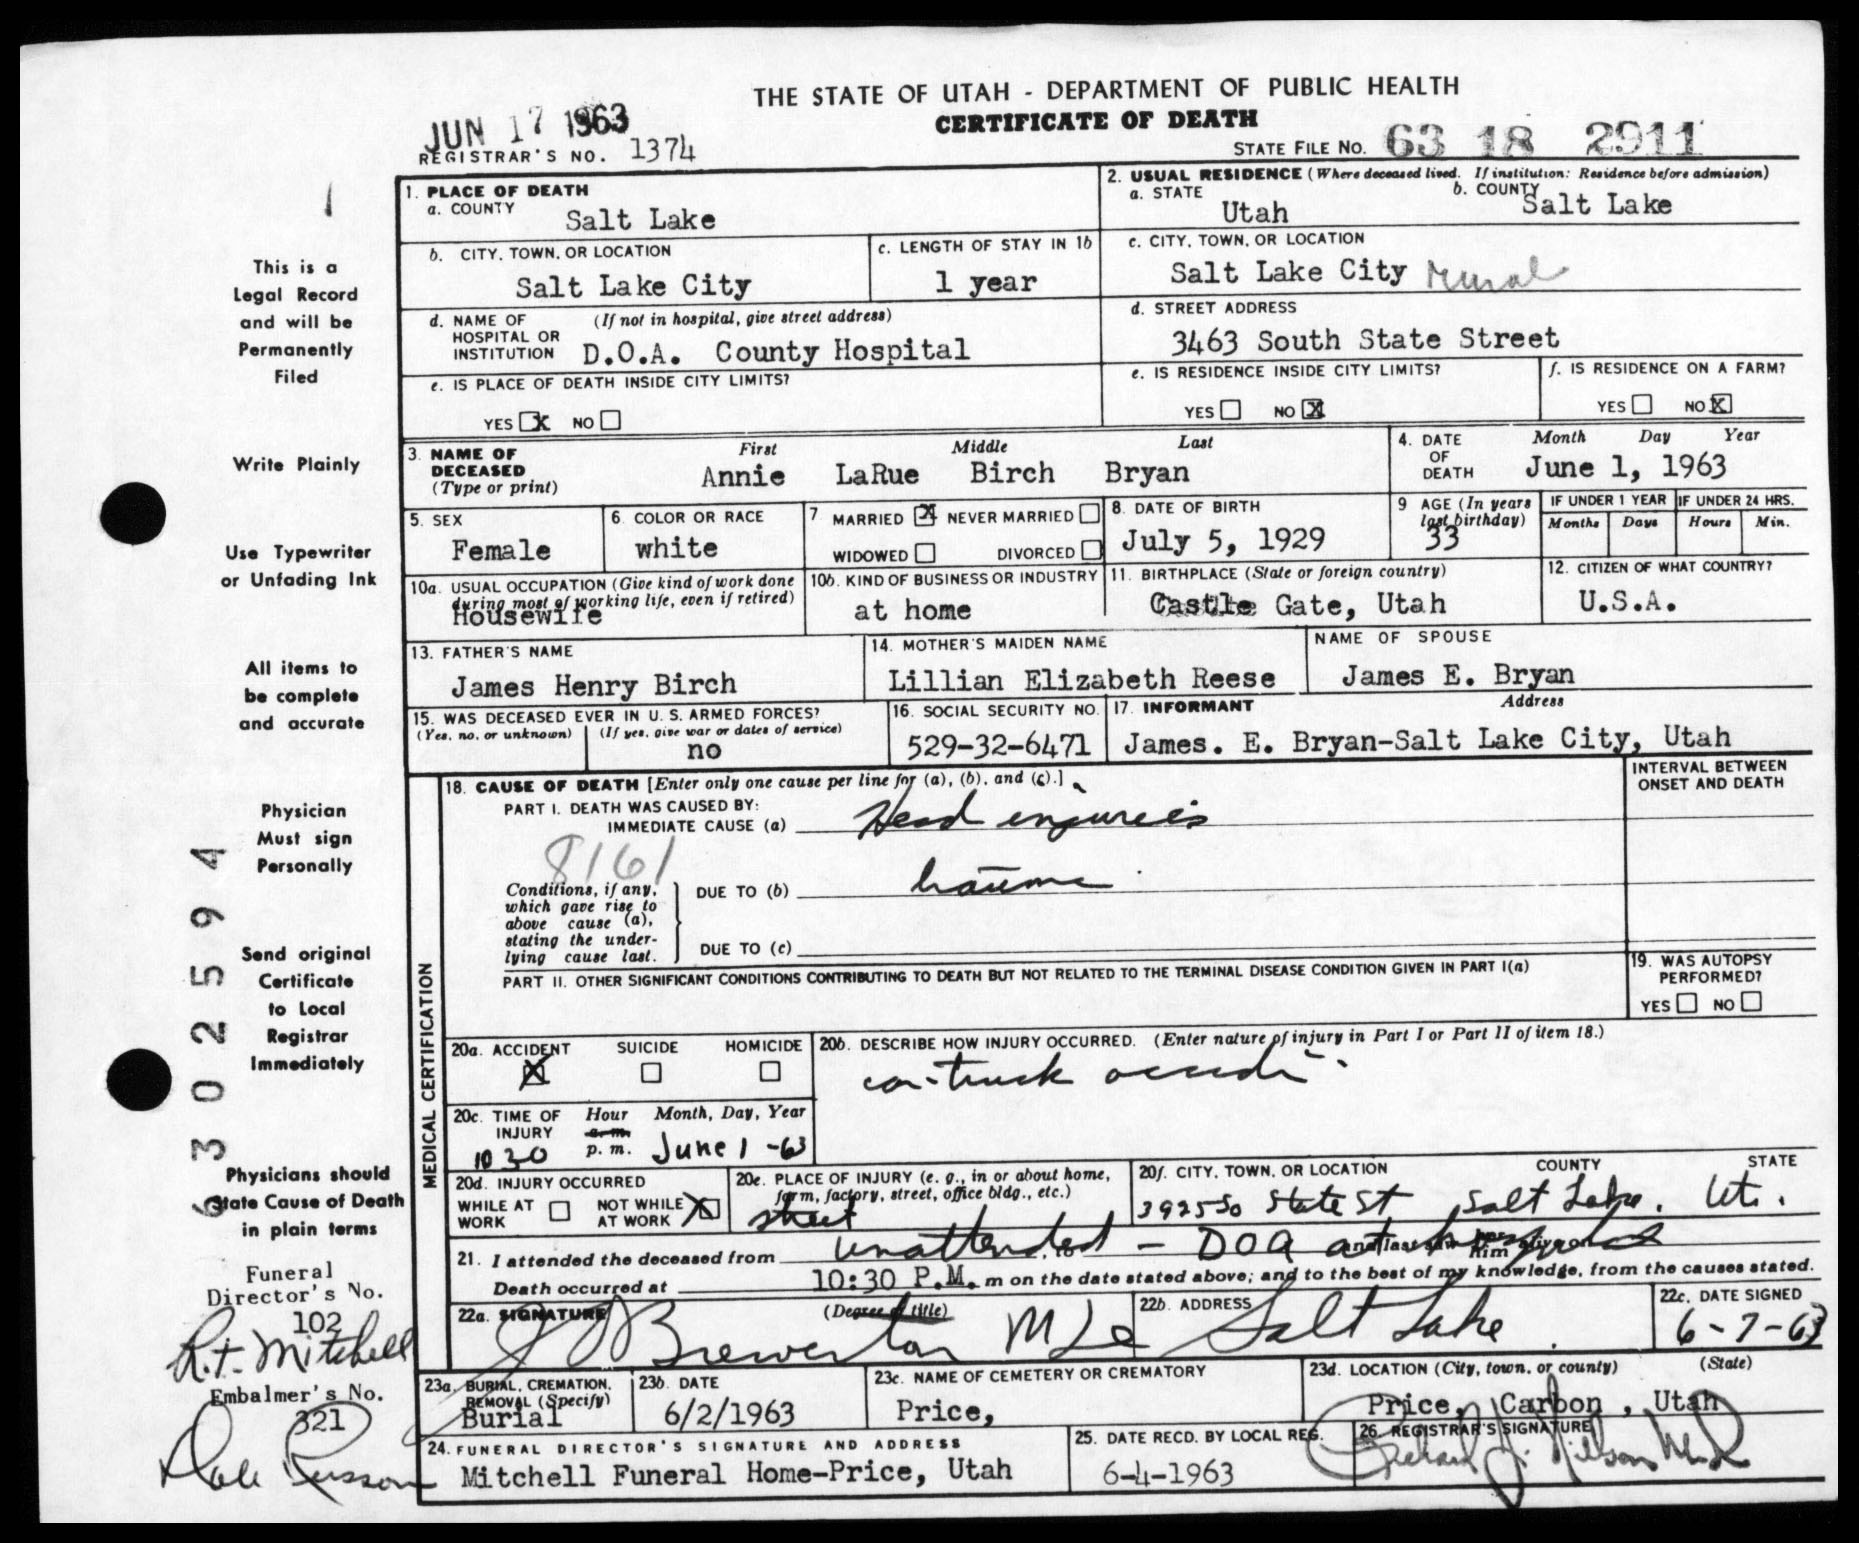 THE STATE OF UTAH - DEPARTMENT OF PUBLIC HEALTH
CERTIFICATE OF DEATH
JUN 17 1963
REGISTRAR'S NO. 1374
STATE FILE NO. 63 18 2911
This is a
Legal Record
and will be
Permanently
Filed
Write Plainly
Use Typewriter
or Unfading Ink
All items to
be complete
and accurate
Physician
Must sign
Personally
Send original
Certificate
to Local
Registrar
Immediately
Physicians should
State Cause of Death
in plain terms
Funeral
Director's No.
102
R.t. Mitchell
Embalmer's No.
321
6302594
1. PLACE OF DEATH
a. COUNTY Salt Lake
2. USUAL RESIDENCE (Where deceased lived. If institution: Residence before admission)
a. STATE Utah b. COUNTY Salt Lake
b. CITY, TOWN, OR LOCATION Salt Lake City
c. LENGTH OF STAY IN 1b 1 year
c. CITY, TOWN, OR LOCATION Salt Lake City rural
d. NAME OF HOSPITAL OR INSTITUTION (If not in hospital, give street address) D.O.A. County Hospital
d. STREET ADDRESS 3463 South State Street
e. IS PLACE OF DEATH INSIDE CITY LIMITS?
YES X NO
e. IS RESIDENCE INSIDE CITY LIMITS?
YES NO X
f. IS RESIDENCE ON A FARM?
YES NO X
3. NAME OF DECEASED (Type or print)
First Middle Last
Annie LaRue Birch Bryan
4. DATE OF DEATH Month Day Year
June 1, 1963
5. SEX Female
6. COLOR OR RACE white
7 MARRIED X NEVER MARRIED
WIDOWED DIVORCED
8. DATE OF BIRTH July 5, 1929
9 AGE (In years last birthday) 33
IF UNDER 1 YEAR Months Days
IF UNDER 24 HRS. Hours Min.
10a. USUAL OCCUPATION (Give kind of work done during most of working life, even if retired) Housewife
10b. KIND OF BUSINESS OR INDUSTRY at home
11. BIRTHPLACE (State or foreign country) Castle Gate, Utah
12. CITIZEN OF WHAT COUNTRY? U.S.A.
13. FATHER'S NAME James Henry Birch
14. MOTHER'S MAIDEN NAME Lillian Elizabeth Reese
NAME OF SPOUSE James E. Bryan
15. WAS DECEASED EVER IN U. S. ARMED FORCES?
(Yes, no, or unknown) (If yes, give war or dates of service) no
16. SOCIAL SECURITY NO. 529-32-6471
17. INFORMANT Address
James. E. Bryan-Salt Lake City, Utah
MEDICAL CERTIFICATION
18. CAUSE OF DEATH [Enter only one cause per line for (a), (b), and (c).]
INTERVAL BETWEEN ONSET AND DEATH
PART I. DEATH WAS CAUSED BY:
IMMEDIATE CAUSE (a) Head injuries
8161
Conditions, if any, which gave rise to above cause (a), stating the underlying cause last.
DUE TO (b) trauma
DUE TO (c)
PART II. OTHER SIGNIFICANT CONDITIONS CONTRIBUTING TO DEATH BUT NOT RELATED TO THE TERMINAL DISEASE CONDITION GIVEN IN PART I(a)
19. WAS AUTOPSY PERFORMED?
YES NO
20a. ACCIDENT SUICIDE HOMICIDE
X
20b. DESCRIBE HOW INJURY OCCURRED. (Enter nature of injury in Part I or Part II of item 18.)
car-truck accident
20c. TIME OF INJURY Hour Month, Day, Year
a. m.
10 30 p. m. June 1 -63
20d. INJURY OCCURRED
WHILE AT WORK NOT WHILE AT WORK X
20e. PLACE OF INJURY (e. g., in or about home, farm, factory, street, office bldg., etc.)
street
20f. CITY, TOWN, OR LOCATION COUNTY STATE
3925 So State St Salt Lake. Ut.
21. I attended the deceased from unattended - DOA at hospital and last saw him alive on
Death occurred at 10:30 P.M. m on the date stated above; and to the best of my knowledge, from the causes stated.
22a. SIGNATURE (Degree or title)
Brewerton
22b. ADDRESS Salt Lake
22c. DATE SIGNED 6-7-63
23a. BURIAL, CREMATION, REMOVAL (Specify) Burial
23b. DATE 6/2/1963
23c. NAME OF CEMETERY OR CREMATORY Price,
23d. LOCATION (City, town, or county) (State)
Price, Carbon, Utah
24. FUNERAL DIRECTOR'S SIGNATURE AND ADDRESS
Mitchell Funeral Home-Price, Utah
25. DATE RECD. BY LOCAL REG. 6-4-1963
26. REGISTRAR'S SIGNATURE